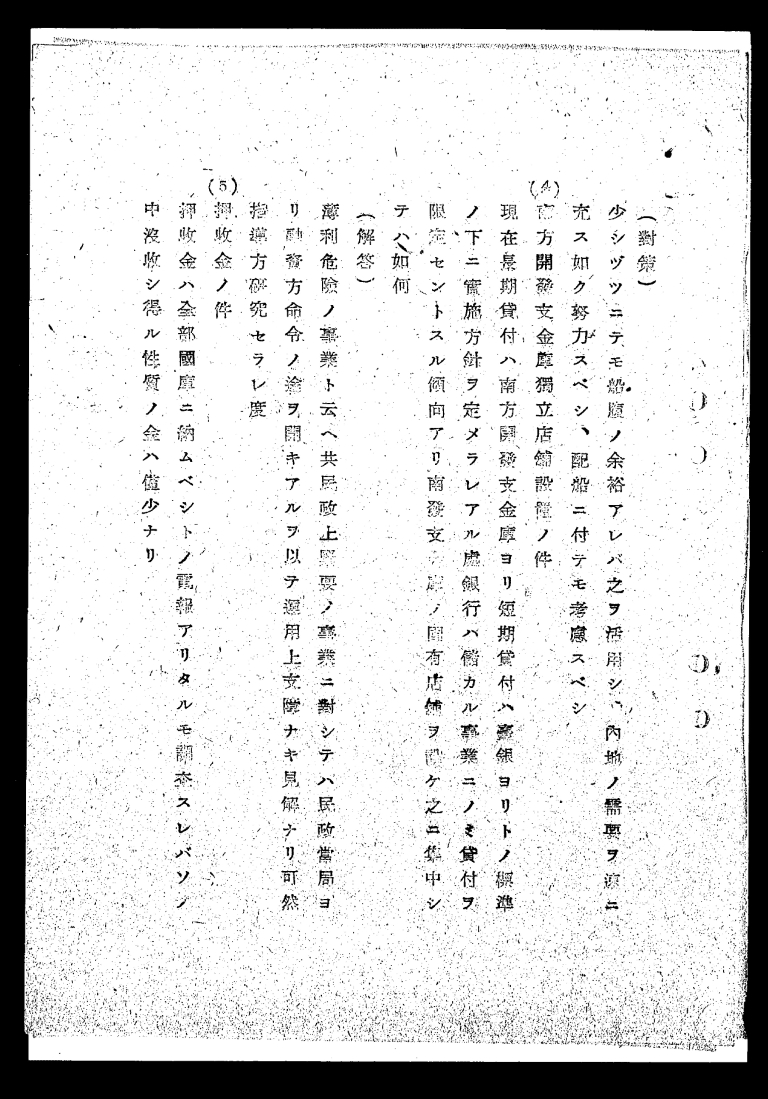 (對策)
少シヅツニテモ船腹ノ余裕アレバ之ヲ活用シ、內地ノ需要ヲ源ニ
充ス如ク努力スベシ、配船ニ付テモ考慮スベシ
(4)
南方開發支金庫獨立店舖設置ノ件
現在長期貸付ハ南方開發支金庫ヨリ短期貸付ハ臺銀ヨリトノ標準
ノ下ニ實施方針ヲ定メラレアル處銀行ハ儲カル事業ニノミ貸付ヲ
限定セントスル傾向アリ南發支金庫ノ固有店舖ヲ設ケ之ニ集中シ
テハ如何
(解答)
薄利危險ノ事業ト云ヘ共民政上緊要ノ事業ニ對シテハ民政當局ヨ
リ融資方命令ノ途ヲ開キアルヲ以テ運用上支障ナキ見解ナリ可然
指導方硏究セラレ度
(5)
押收金ノ件
押收金ハ全部國庫ニ納ムベシトノ電報アリタルモ調査スレバソノ
中沒收シ得ル性質ノ金ハ僅少ナリ